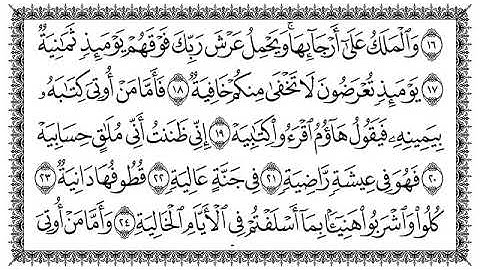 ١٦ وَٱلْمَلَكُ عَلَىٰٓ أَرْجَآئِهَا ۚ وَيَحْمِلُ عَرْشَ رَبِّكَ فَوْقَهُمْ يَوْمَئِذٍ ثَمَٰنِيَةٌ
١٧ يَوْمَئِذٍ تُعْرَضُونَ لَا تَخْفَىٰ مِنكُمْ خَافِيَةٌ ١٨ فَأَمَّا مَنْ أُوتِىَ كِتَٰبَهُۥ
بِيَمِينِهِۦ فَيَقُولُ هَآؤُمُ ٱقْرَءُوا۟ كِتَٰبِيَهْ ١٩ إِنِّى ظَنَنتُ أَنِّى مُلَٰقٍ حِسَابِيَهْ
٢٠ فَهُوَ فِى عِيشَةٍ رَّاضِيَةٍ ٢١ فِى جَنَّةٍ عَالِيَةٍ ٢٢ قُطُوفُهَا دَانِيَةٌ ٢٣
كُلُوا۟ وَٱشْرَبُوا۟ هَنِيٓـًٔۢا بِمَآ أَسْلَفْتُمْ فِى ٱلْأَيَّامِ ٱلْخَالِيَةِ ٢٤ وَأَمَّا مَنْ أُوتِىَ